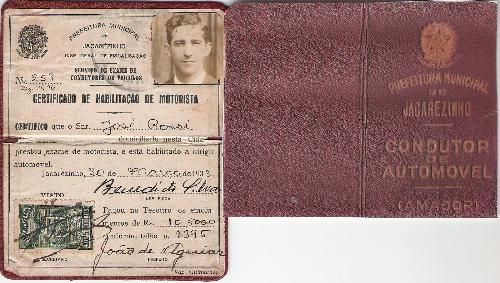 PREFEITURA MUNICIPAL
DE
JACARÈZINHO
INSP. GERAL DE FISCALISAÇÃO
SERVIÇO DE EXAME DE
CONDUTORES DE VEHICULOS
N. 251
CERTIFICADO DE HABILITAÇÃO DE MOTORISTA
CERTIFICO que o Snr. José Rossi
domiciliado nesta Cida
prestou exame de motorista, e está habilitado a dirigir
automovel.
Jacarézinho, 20 de Março de 193
VISTO
Benedito Silva
Pagou no Tesouro os emolu
mentos de Rs. 10.000
conforme talão n. 1395
João de Aguiar
SECRETARIO PREFEITO
Tip. Guimarães
PREFEITURA MUNICIPAL
DE
JACARÈZINHO
CONDUTOR
DE
AUTOMOVEL
(AMADOR)